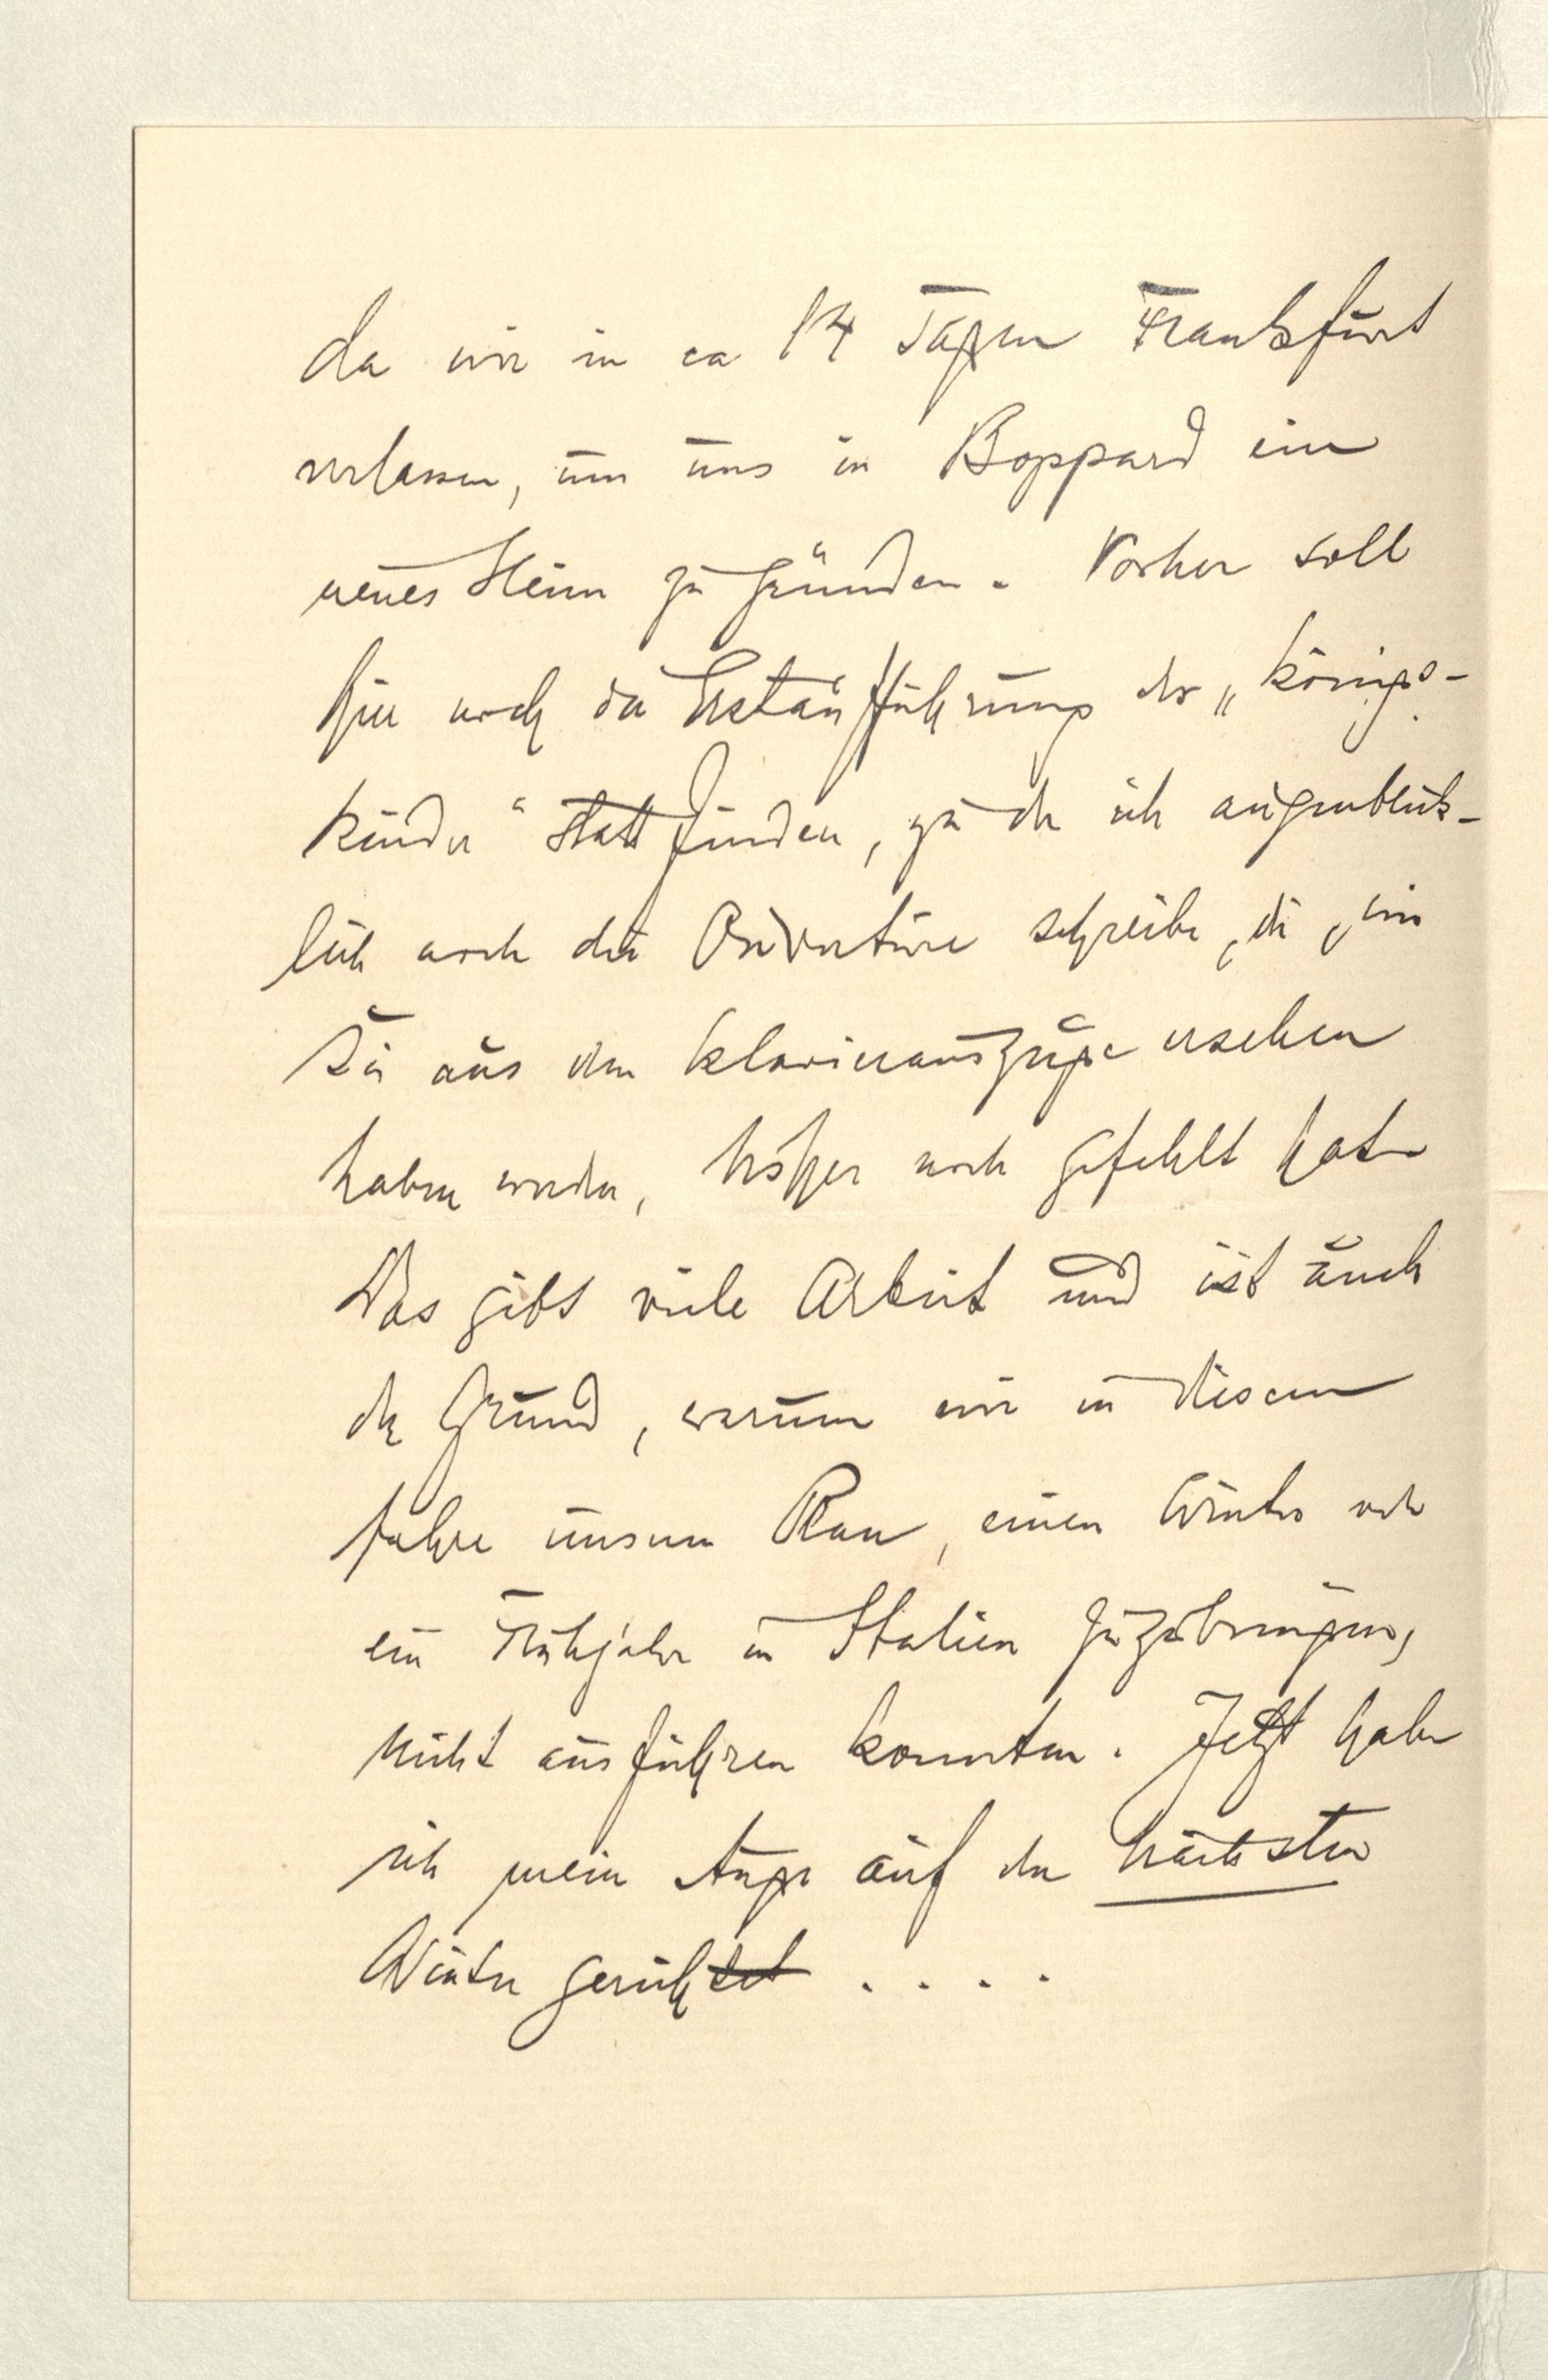 da wir in ca 14 Tagen Frankfurt
verlassen, um uns in Boppard ein
neues Heim zu gründen. Vorher soll
hier noch die Erstaufführung der „Königs-
kinder“ stattfinden, zu der ich augenblick-
lich noch die Ouverture schreibe, die, wie
Sie aus dem Klavierauszuge ersehen
haben werden, bisher noch gefehlt hat.
Das gibt viele Arbeit und ist auch
der Grund, warum wir in diesem
Jahre unseren Plan, einen Winter oder
ein Frühjahr in Italien zuzubringen,
nicht ausführen konnten. Jetzt habe
ich mein Auge auf den nächsten
Winter gerichtet . . . .